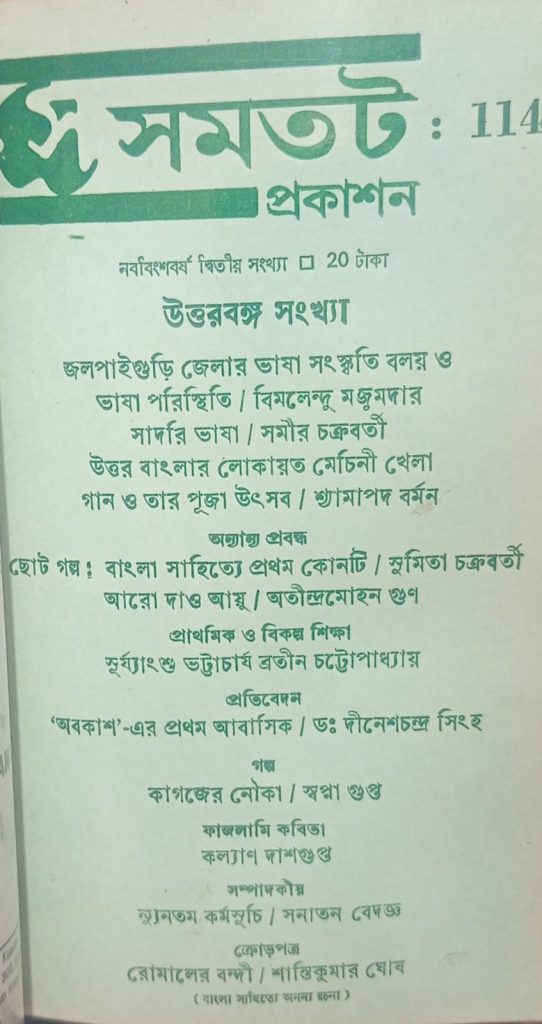 সমতট : 114
প্রকাশন
নবাবিংশবর্ষ দ্বিতীয় সংখ্যা □ 20 টাকা
উত্তরবঙ্গ সংখ্যা
জলপাইগুড়ি জেলার ভাষা সংস্কৃতি বলয় ও
ভাষা পরিস্থিতি / বিমলেন্দু মজুমদার
সাদরি ভাষা / সমীর চক্রবর্তী
উত্তর বাংলার লোকায়ত মেচিনী খেলা
গান ও তার পূজা উৎসব / শ্যামাপদ বর্মন
অন্যান্য প্রবন্ধ
ছোট গল্প : বাংলা সাহিত্যে প্রথম কোনটি / সুমিতা চক্রবর্তী
আরো দাও আয়ু / অতীন্দ্রমোহন গুণ
প্রাথমিক ও বিকল্প শিক্ষা
সূর্য্যাংশু ভট্টাচার্য ব্রতীন চট্টোপাধ্যায়
প্রতিবেদন
‘অবকাশ’-এর প্রথম আবাসিক / ডঃ দীনেশচন্দ্র সিংহ
গল্প
কাগজের নৌকা / স্বপ্না গুপ্ত
কাজলামি কবিতা
কল্যাণ দাশগুপ্ত
সম্পাদকীয়
ন্যূনতম কর্মসূচি / সনাতন বেদজ্ঞ
ক্রোড়পত্র
রোমালের বন্দী / শান্তিকুমার ঘোষ
( বাংলা সাহিত্যে অনন্য রচনা )